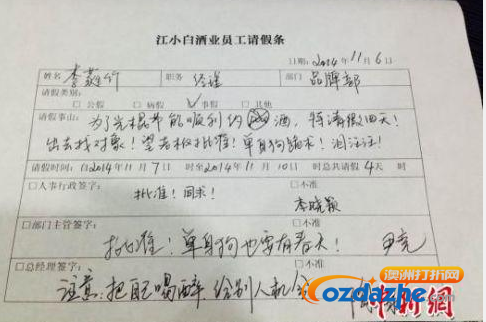 江小白酒业员工请假条
日期: 2014年11月6日
姓名 李 职务 经理 部门 品牌部
请假类别:
□公假 □病假 ☑事假 □其他
请假事由: 为了光棍节能顺利约酒, 特请假四天!
出去找对象! 望领导批准! 单身狗跪求! 泪汪汪!
请假时间: 自2014年11月7日 时至2014年11月10日 时总共请假4天 时
□人事行政签字: □不准
批准! 同求! 李晓颖
□部门主管签字: □不准
批准! 单身狗也要有春天! 尹亮
□总经理签字: □不准
注意: 把自己喝醉, 给别人机会
澳洲打折网
ozdazhe.com
中新网